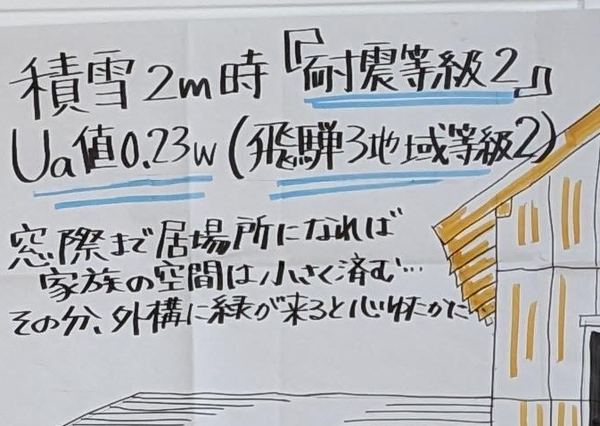 積雪2m時『耐震等級2』
Ua値0.23w(飛騨3地域等級2)
窓際まで居場所になれば
家族の空間は小さく済む…
その分、外構に緑が来ると心豊かに、